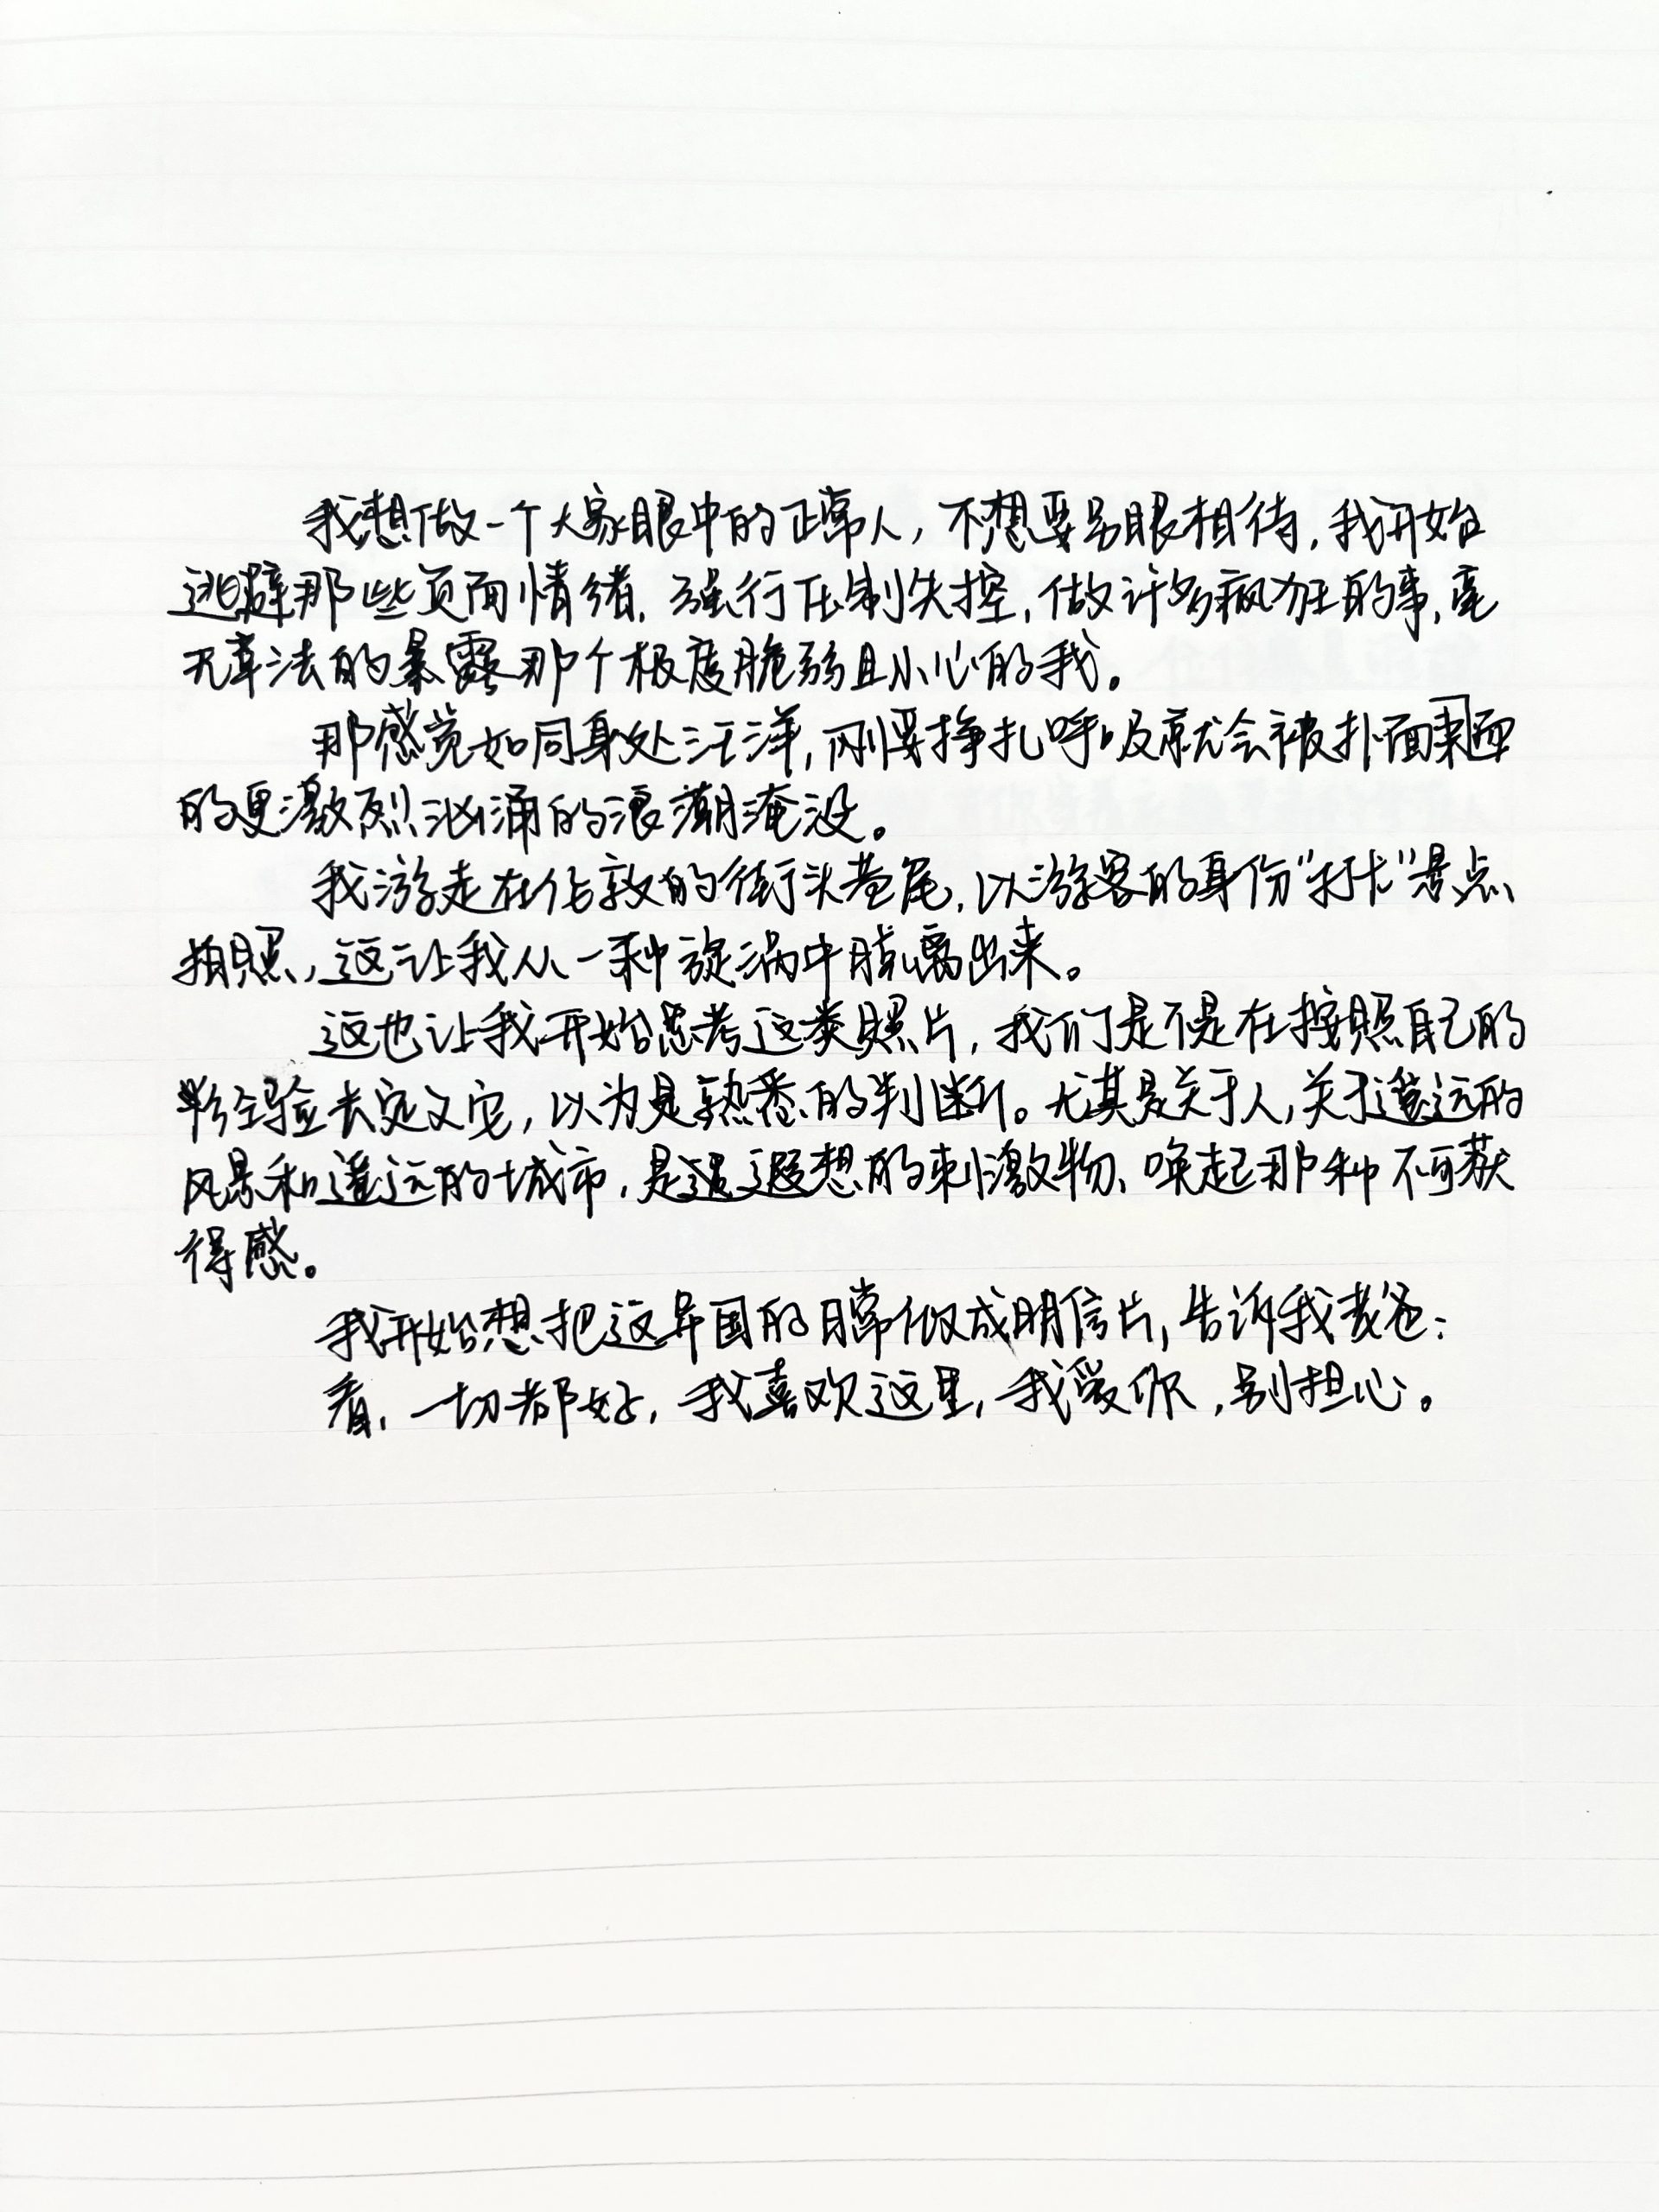 我想做一个大家眼中的正常人，不想要另眼相待，我开始
逃避那些负面情绪，强行压制失控，做许多疯狂的事，毫
无章法的暴露那个极度脆弱且小心的我。
那感觉如同身处汪洋，刚要挣扎呼吸就会被扑面来
的更激烈汹涌的浪潮淹没。
我游走在伦敦的街头巷尾，以游客的身份“打卡”景点、
拍照，这让我从一种旋涡中脱离出来。
这也让我开始思考这类照片，我们是不是在按照自己的
经验去定义它，以为是熟悉的判断。尤其是关于人，关于遥远的
风景和遥远的城市，是遐想的刺激物、唤起那种不可获
得感。
我开始想把这异国的日常做成明信片，告诉我老爸：
看，一切都好，我喜欢这里，我爱你，别担心。